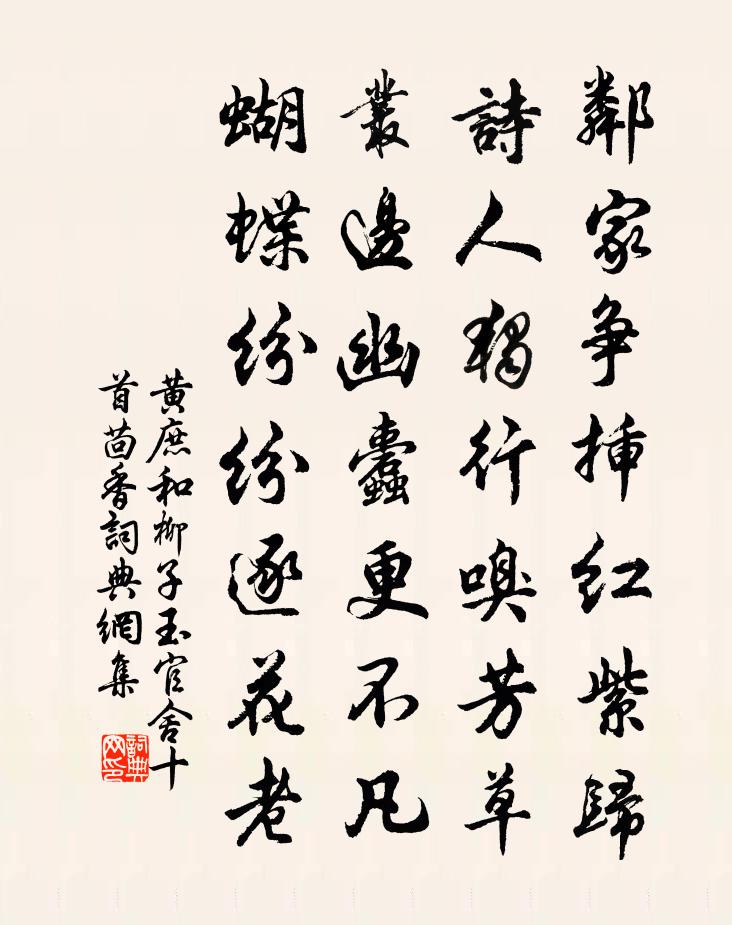 鄰家爭插紅紫歸
詩人獨行嗅芳草
叢邊幽蠹更不凡
蝴蝶紛紛逐花老
黃庶和柳子玉官舍十
首茴香詞典網集
詞典
网印